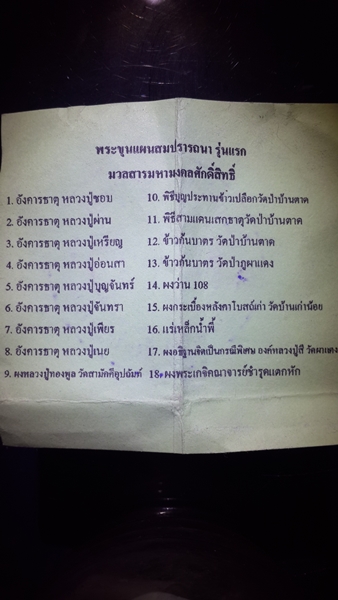 พระขุนแผนสมปรารถนา รุ่นแรก
มวลสารมหามงคลศักดิ์สิทธิ์
1. อังคารธาตุ หลวงปู่ชอบ
2. อังคารธาตุ หลวงปู่ผ่าน
3. อังคารธาตุ หลวงปู่เหรียญ
4. อังคารธาตุ หลวงปู่อ่อนสา
5. อังคารธาตุ หลวงปู่บุญจันทร์
6. อังคารธาตุ หลวงปู่จันทรา
7. อังคารธาตุ หลวงปู่เพียร
8. อังคารธาตุ หลวงปู่เนย
9. ผงหลวงปู่ทองพูล วัดสามัคคีอุปถัมภ์
10. พิธีบุญประทานข้าวเปลือกวัดป่าบ้านตาด
11. พิธีสามแดนเสกธาตุวัดป่าบ้านตาด
12. ข้าวก้นบาตร วัดป่าบ้านตาด
13. ข้าวก้นบาตร วัดป่าภูผาแดง
14. ผงว่าน 108
15. ผงกระเบื้องหลังคาโบสถ์เก่า วัดบ้านเก่าน้อย
16. แร่เหล็กน้ำพี้
17. ผงอธิฐานจิตเป็นกรณีพิเศษ องค์หลวงปู่ลี วัดผาแดง
18. ผงพระเกจิคณาจารย์ชำรุดแตกหัก